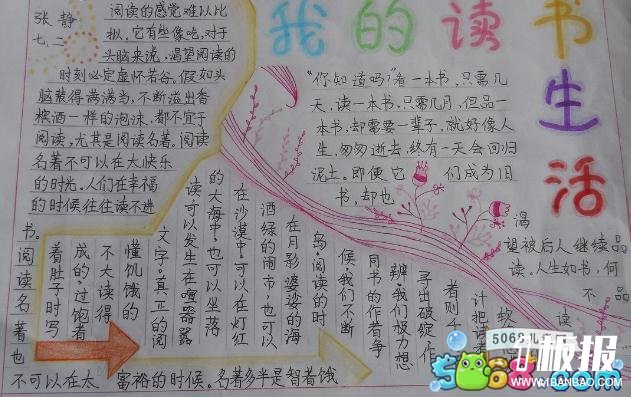 我的读书生活
张静
七、二
阅读的感觉难以比
拟,它有些像吃,对于
头脑来说,渴望阅读的
时刻必定虚怀若谷。假如头
脑装得满满当,不断溢出香
槟酒一样的泡沫,都不宜于
阅读,尤其是阅读名著。阅读
名著不可以在太快乐
的时光。人们在幸福
的时候往往读不进
书。
阅读名著也
不可以在太富裕的时候。名著多半是智者饿
着肚子时写
成的,过饱者
不大读得
懂饥饿的
文字。真正的阅
读可以发生在喧嚣器
的大海中,也可以坐落
在沙漠中,可以在灯红
酒绿的闹市,也可以
在月影婆娑的海
岛。阅读的时
候,我们不断
同书的作者争
辨,我们极力想
寻出破绽,作
者则千
计把读者
软
"你知道吗?"看一本书,只需几
天,读一本书,只需几月,但品一
本书,却需要一辈子,就好像人
生,匆匆逝去,终有一天会回归
泥土。即使它们成为旧
书,却也
渴
望被后人继续品
读,人生如书,何
不品
读
5068儿
5068.com
板报
WWW.1BANBAO.COM